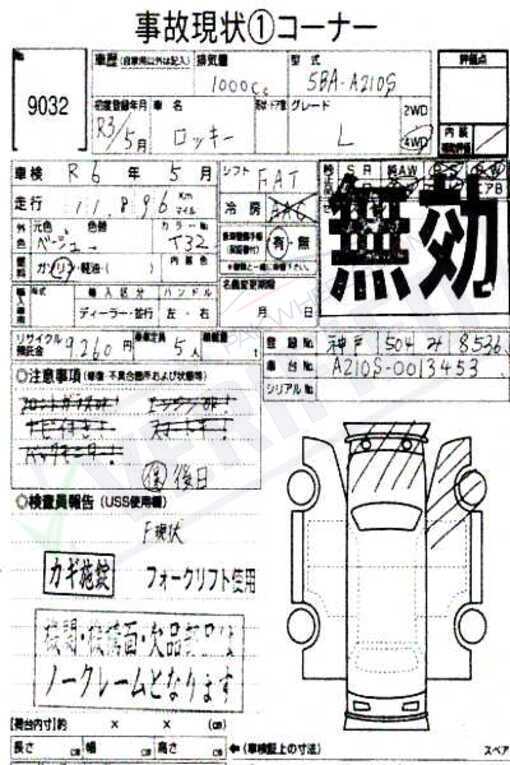 事故現状①コーナー
No. 9032
車歴(自家用以外は記入) 排気量 1000cc 型式 5BA-A210S 評価点
初度登録年月 R3/5月 車名 ロッキー 形状・ドア数 グレード L 2WD 4WD 内装
車検 R6年5月 シフト FAT SR 純AW PS PW
走行 11,896 Km マイル 冷房 AAC エアB
外色 元色 色替 カラーNo. T32 有・無
無効
燃料 ガソリン・軽油・( ) 内装色 名義変更期限
輸入車用 年式 輸入区分 ハンドル
ディーラー・並行 左・右 月 日
リサイクル預託金 9260円 乗車定員 5人 積載量 t 登録No. 神戸 504 み 8536
車台No. A210S-0013453
シリアルNo.
◎注意事項(修復・不具合箇所および状態等)
保 後日
◎検査員報告(USS使用欄)
F現状
カギ施錠 フォークリフト使用
機関・機構面・欠品部品は
ノークレームとなります
【荷台内寸】約 × × (cm)
長さ cm 幅 cm 高さ cm ←(車検証上の寸法) スペア
PAKWHEELS
VERIFIED